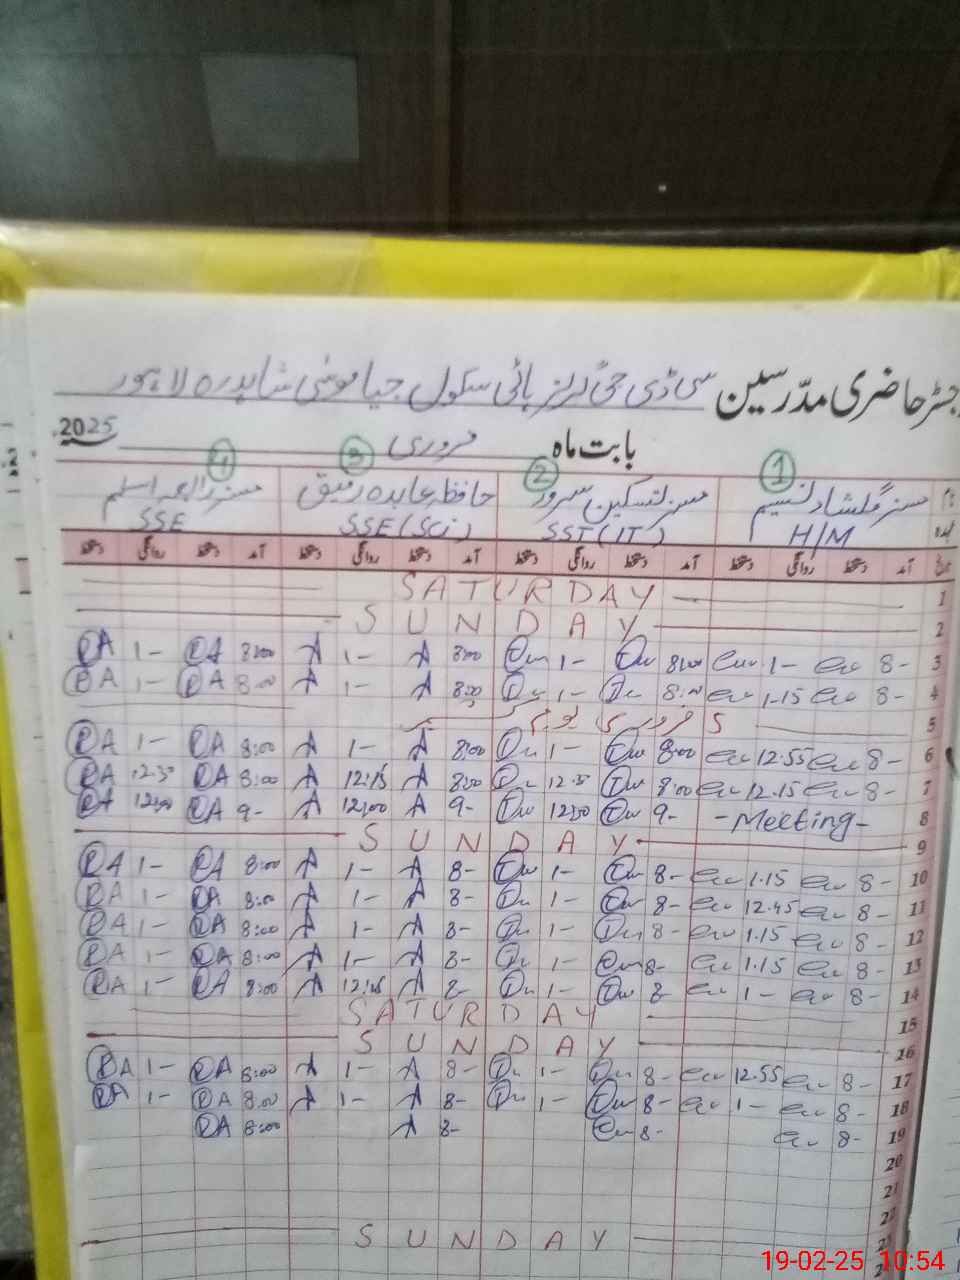 رجسٹر حاضری مدّرسین سی ڈی جی گرلز ہائی سکول جیا موسیٰ شاہدرہ لاہور
بابت ماہ فروری 2025
1 2 3 4
مسز گلشاد نسیم مسز تسکین سرور حافظہ عابدہ رفیق مسز رابعہ اسلم
H/M SST (IT) SSE (Sci) SSE
آمد دستخط روانگی دستخط آمد دستخط روانگی دستخط آمد دستخط روانگی دستخط آمد دستخط روانگی دستخط
SATURDAY 1
SUNDAY 2
RA 1- RA 8:00 A 1- A 8:00 1- 8:00 1- 8- 3
RA 1- RA 8:00 A 1- A 8:00 1- 8:00 1.15 8- 4
5 فروری یوم کشمیر 5
RA 1- RA 8:00 A 1- A 8:00 1- 8:00 12.55 8- 6
RA 12.30 RA 8:00 A 12:15 A 8:00 12.30 8:00 12.15 8- 7
RA 12:00 RA 9- A 12:00 A 9- 12:00 9- -Meeting- 8
SUNDAY 9
RA 1- RA 8:00 A 1- A 8- 1- 8- 1.15 8- 10
RA 1- RA 8:00 A 1- A 8- 1- 8- 12.45 8- 11
RA 1- RA 8:00 A 1- A 8- 1- 8- 1.15 8- 12
RA 1- RA 8:00 A 1- A 8- 1- 8- 1.15 8- 13
RA 1- RA 8:00 A 12:15 A 8- 1- 8- 1- 8- 14
SATURDAY 15
SUNDAY 16
RA 1- RA 8:00 A 1- A 8- 1- 8- 12.55 8- 17
RA 1- RA 8:00 A 1- A 8- 1- 8- 1- 8- 18
RA 8:00 A 8- 8- 8- 19
20
21
22
SUNDAY 23
19-02-25 10:54